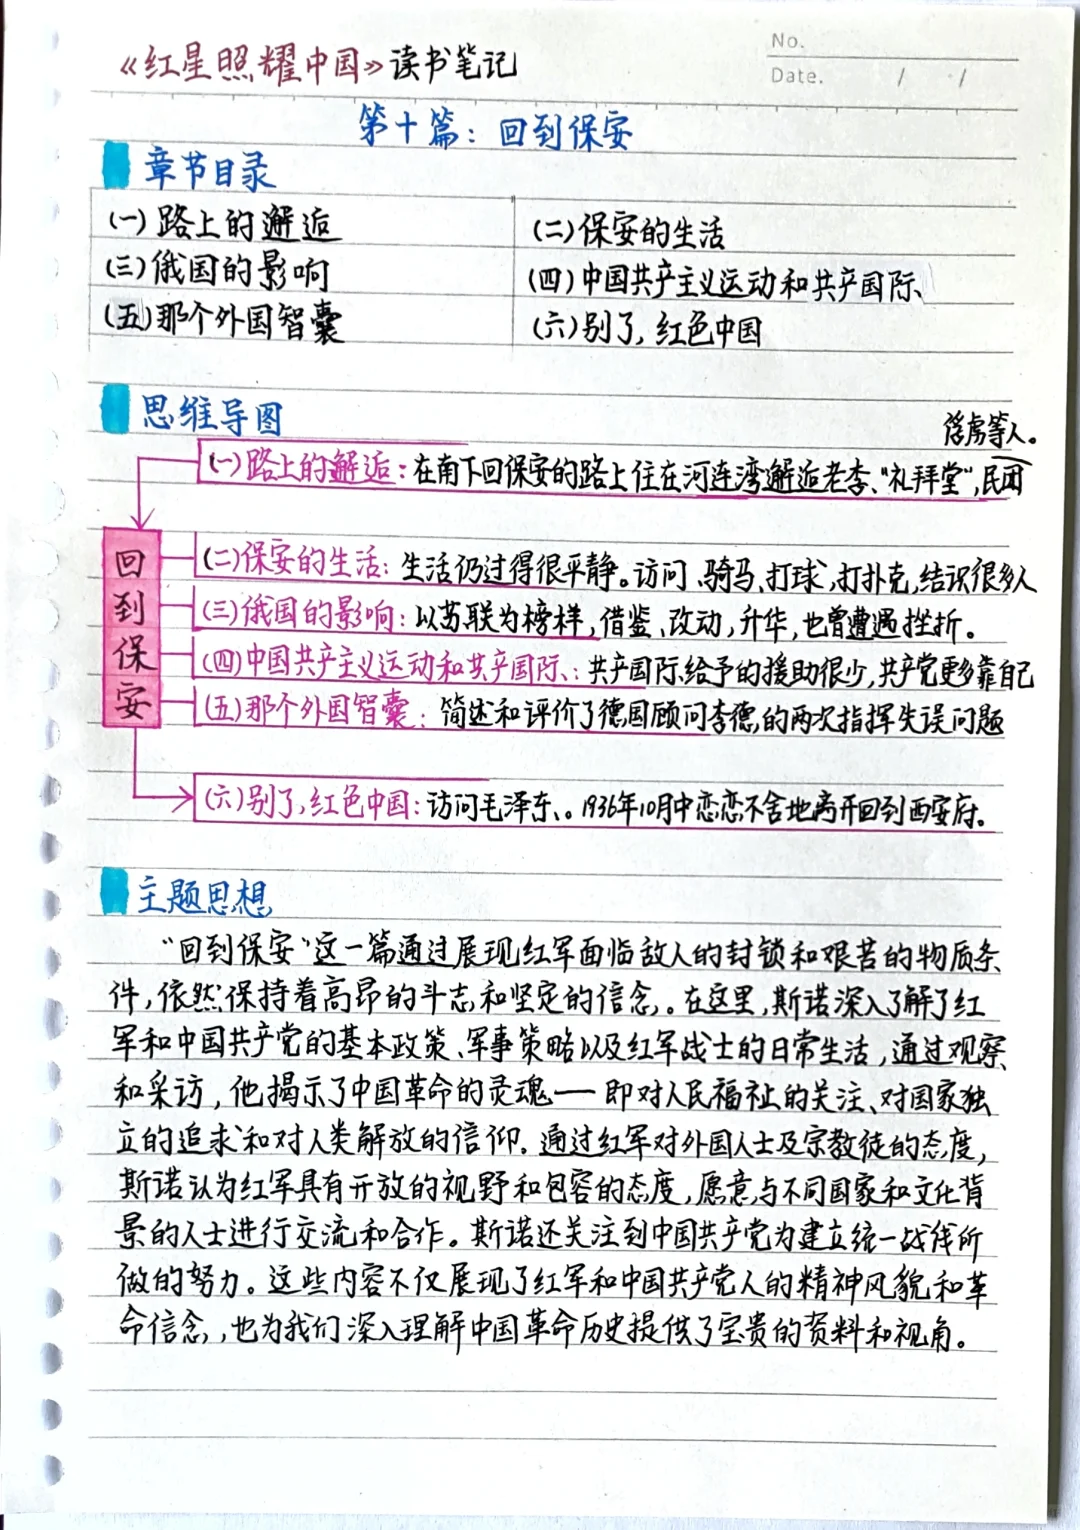 No.
Date. / /
《红星照耀中国》读书笔记
第十篇：回到保安
章节目录
(一)路上的邂逅
(二)保安的生活
(三)俄国的影响
(四)中国共产主义运动和共产国际、
(五)那个外国智囊
(六)别了,红色中国
思维导图
俘虏等人。
(一)路上的邂逅：在南下回保安的路上住在河连湾邂逅老李、"礼拜堂",民团
回到保安
(二)保安的生活：生活仍过得很平静。访问、骑马、打球、打扑克,结识很多人
(三)俄国的影响：以苏联为榜样,借鉴、改动,升华,也曾遭遇挫折。
(四)中国共产主义运动和共产国际、：共产国际给予的援助很少,共产党更多靠自己
(五)那个外国智囊：简述和评价了德国顾问李德的两次指挥失误问题
(六)别了,红色中国：访问毛泽东、。1936年10月中恋恋不舍地离开回到西安府。
主题思想
"回到保安"这一篇通过展现红军面临敌人的封锁和艰苦的物质条
件,依然保持着高昂的斗志和坚定的信念。在这里,斯诺深入了解了红
军和中国共产党的基本政策、军事策略以及红军战士的日常生活,通过观察
和采访,他揭示了中国革命的灵魂——即对人民福祉的关注、对国家独
立的追求和对人类解放的信仰。通过红军对外国人士及宗教徒的态度,
斯诺认为红军具有开放的视野和包容的态度,愿意与不同国家和文化背
景的人士进行交流和合作。斯诺还关注到中国共产党为建立统一战线所
做的努力。这些内容不仅展现了红军和中国共产党人的精神风貌和革
命信念,也为我们深入理解中国革命历史提供了宝贵的资料和视角。